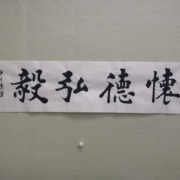 懷德弘毅